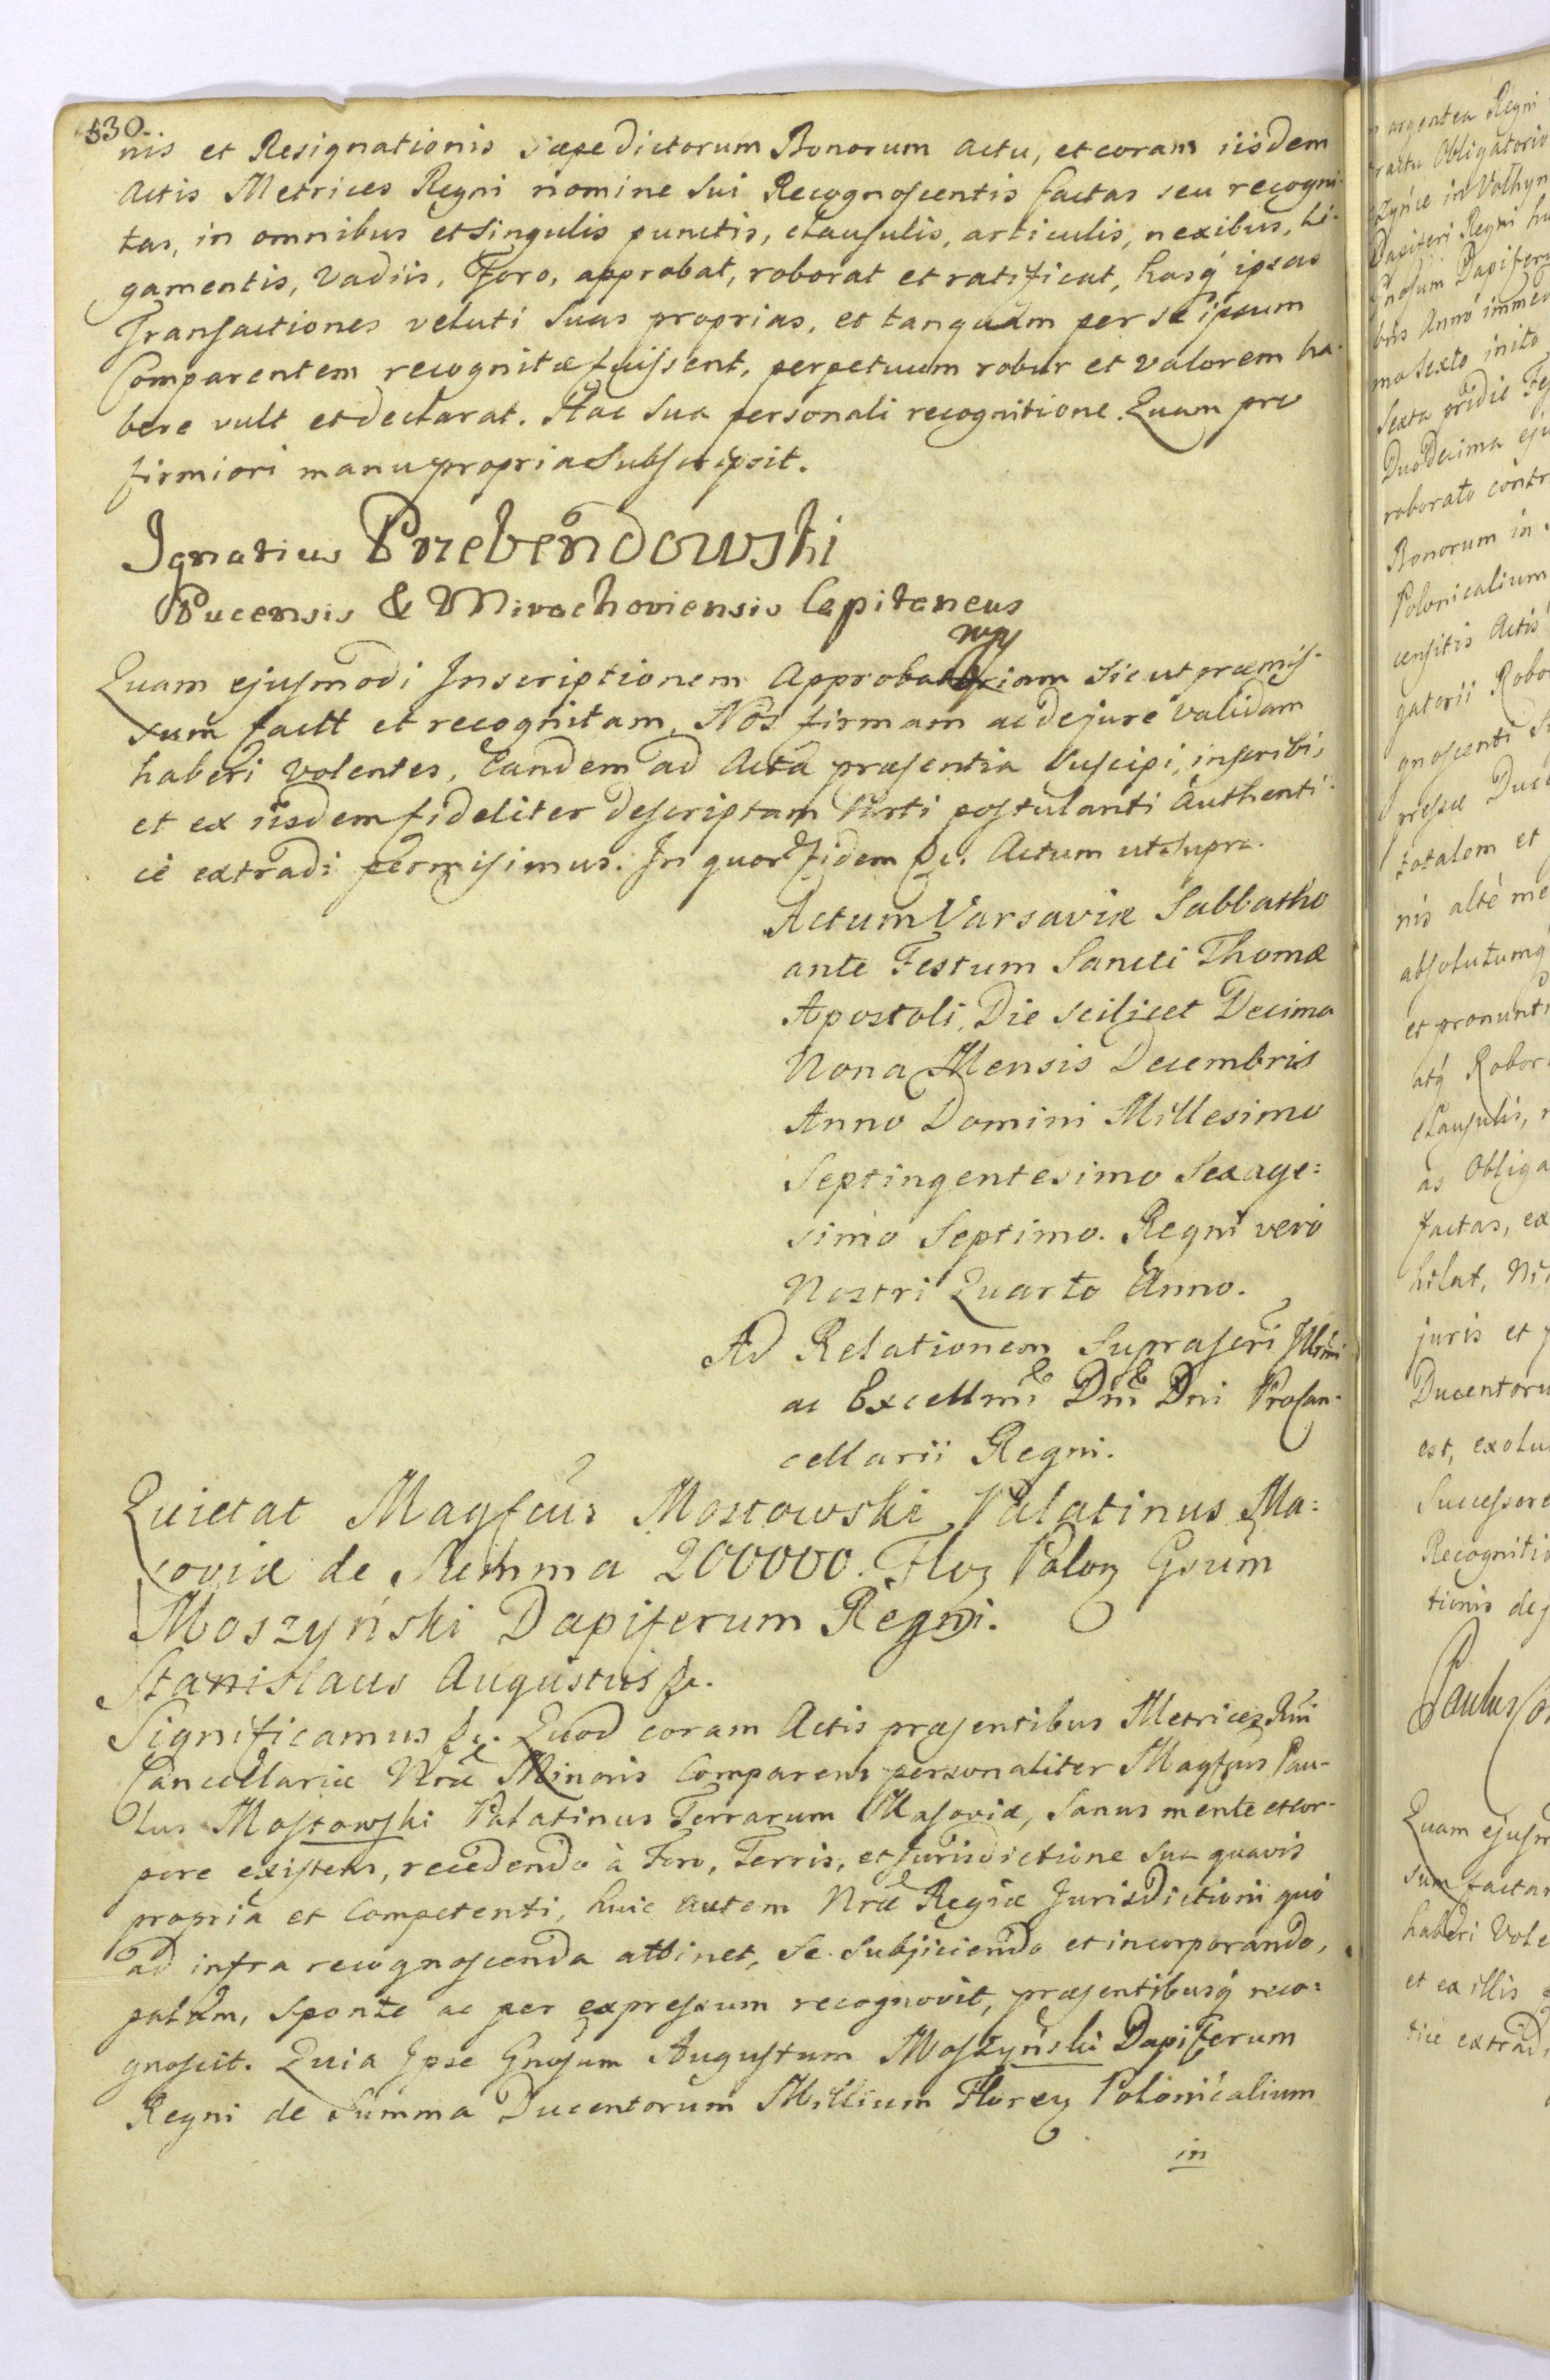 530.
nis et Resignationis Sæpedictorum Bonorum actu, et coram iisdem
Actis Metrices Regni nomine sui Recognoscentis factas seu recogni-
tas, in omnibus et singulis punctis, clausulis, articulis, nexibus, li-
gamentis, vadiis, Foro, approbat, roborat et ratificat, hasq́ ipsas
Transactiones veluti suas proprias, et tanquam per se ipsum
Comparentem recognitæ fuissent, perpetuum robur et valorem ha-
bere vult et declarat. Hac sua personali recognitione. Quam pro
firmiori manu propria subscripsit.
Ignatius Przebendowski
Pucensis & Mirachoviensis Capitaneus
mpp
Quam ejusmodi Inscriptionem Approbatoriam sicut præmis-
sum factt et recognitam, Nos firmam ac de jure validam
haberi volentes, Eandem ad Acta præsentia suscipi, inscribi,
et ex iisdem fideliter descriptam Parti postulanti authenti-
cè extradi permisimus. In quor fidem &c. Actum ut supra.
Actum Varsaviæ Sabbatho
ante Festum Sancti Thomæ
Apostoli, Die scilicet Decima
Nona Mensis Decembris
Anno Domini Millesimo
Septingentesimo Sexage:
simo Septimo. Regni verò
Nostri Quarto Anno.
Ad Relationem Suprascri Illmi
ac Excellmi Dni Dni Procan-
cellarii Regni.
Quietat Magfcus Mostowski Palatinus Ma:
soviæ de Summa 200000. Floz Poloz Gsum
Moszyński Dapiferum Regni.
Stanislaus Augustus &c.
Significamus &c. Quod coram Actis præsentibus Metrices Rni
Cancellariæ Nræ Minoris Comparens personaliter Magfcus Pau-
lus Mostowski Palatinus Terrarum Masoviæ, sanus mente et cor-
pore existens, recedendo à Foro, Terris, et Jurisdictione sua quavis
propria et competenti, huic autem Nræ Regiæ Jurisdictioni quò
ad infra recognoscenda attinet, se subjiciendo et incorporando,
palam, sponte ac per expressum recognovit, præsentibusq́ reco:
gnoscit. Quia Ipse Gnosum Augustum Moszyński Dapiferum
Regni de Summa Ducentorum Millium Florez Polonicalium
in
argentea Regni
Obligatorio
in Volhyn
Dapiferi Regni
Dapifer
bris Anno imme
mo Sexto inito
Sexta pridie Fe
Duodecima eju
roborato contr
Bonorum in
Polonicalium
censitis Actis
gatorii Robo
gnoscenti
pressæ Duc
totalem et
nis altè me
absolutumq́
et pronunti
atq́ Robor
Clausulis,
as Obliga
factas, ex
hilat,
juris et
Ducentoru
est, exolu
Successore
Recogniti
tionis de
Paulus
Quam ejusm
sum factam
haberi Vole
et ex illis
ticè extradi